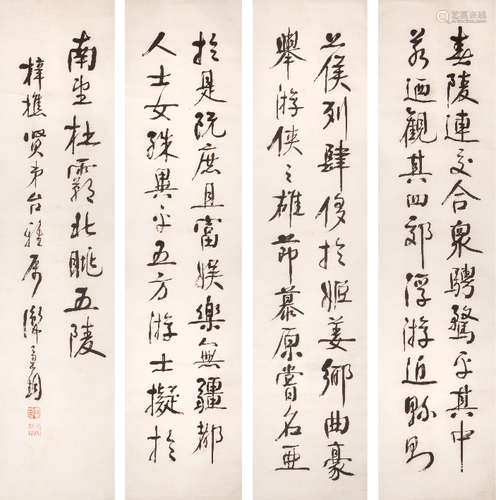 春陵連交合衆騁騖乎其中
若迺觀其四郊浮游近縣則
公侯列肆侈於姬姜鄉曲豪
舉游俠之雄節慕原嘗名亞
於是既庶且富娛樂無疆都
人士女殊異乎五方游士擬於
南望杜霸北眺五陵
梓樵賢弟台雅屬